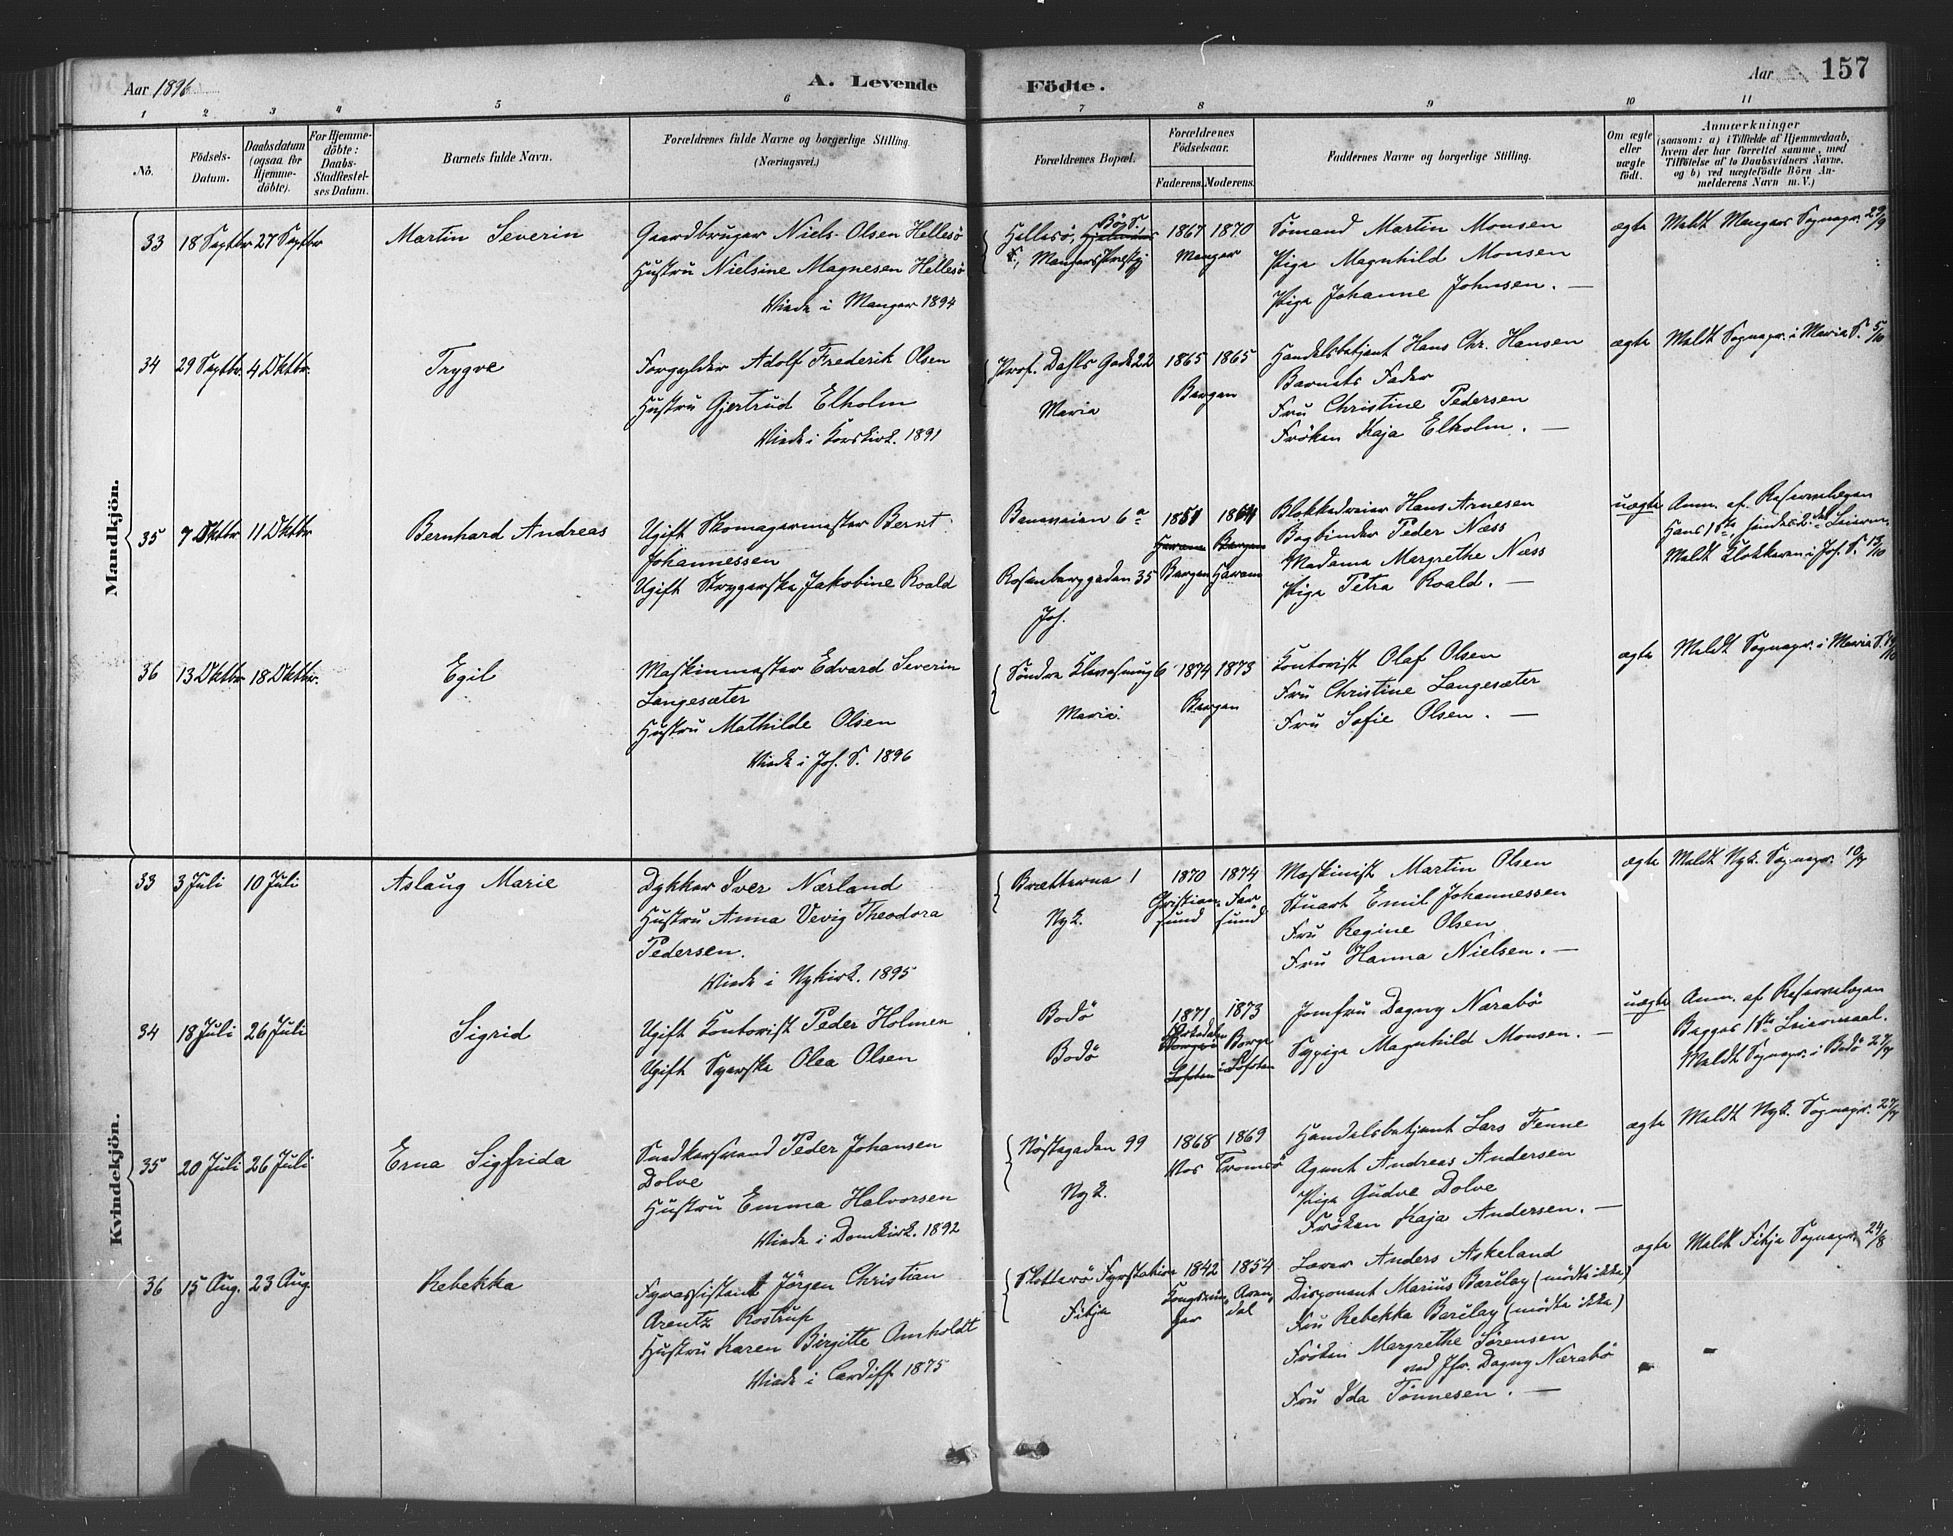 Aar 1896
A. Levende
Födte.
Aar
157
1 2 3 4 5 6 7 8 9 10 11
No.
Födsels-Datum.
Daabsdatum (ogsaa for Hjemme-döbte).
For Hjemme-döbte: Daabs-Stadfæstel-ses Datum.
Barnets fulde Navn.
Forældrenes fulde Navne og borgerlige Stilling.
(Næringsvei.)
Forældrenes Bopæl.
Forældrenes Födselsaar.
Faderens. Moderens.
Faddernes Navne og borgerlige Stilling.
Om ægte eller uægte födt.
Anmærkninger
(saasom: a) i Tilfælde af Hjemmedaab, hvem der har forrettet samme, med Tilföielse af to Daabsvidners Navne. og b) ved uægtefödte Börn An-melderens Navn m. V.)
Mandkjön.
33 18 Septbr 27 Septbr
Martin Severin
Gaardbruger Niels Olsen Hellesö
Hustru Nielsine Magnesen Hellesö
Viede i Manger 1894
Hellesö, Bös S.
S., Mangers Præstgj
1867 1870
Manger
Sömand Martin Monsen
Pige Magnhild Monsen
Pige Johanne Johnsen. —
ægte
Meldt Mangers Sognepr. 29/9
34 29 Septbr. 4 Oktbr.
Trygve
Forgylder Adolf Frederik Olsen
Hustru Gjertrud Elholm
Viede i Korskirk. 1891
Prof. Dahls Gade 22
Maria
1865 1865
Bergen
Handelsbetjent Hans Chr. Hansen
Barnets Fader
Fru Christine Pedersen
Fröken Kaja Elholm. —
ægte
Meldt Sognepr. i Maria S. 5/10
35 7 Oktbr 11 Oktbr
Bernhard Andreas
Ugift Skomagermester Bernt
Johannessen
Ugift Strygerske Jakobine Roald
Baneveien 6a
Rosenberggaden 35
Joh.
1851 1864
Haram Bergen
Bergen Haram
Blokkedreier Hans Arnesen
Bogbinder Peder Næss
Madame Margrethe Næss
Pige Petra Roald. —
uægte
Anm. af Reservelægen
Hans 1ste hendes 2det Leierm.
Meldt Klokkeren i Joh. S. 13/10
36 13 Oktbr 18 Oktbr.
Egil
Maskinmester Edvard Severin
Langesæter
Hustru Mathilde Olsen
Viede i Joh. S. 1896
Söndre Klevesmug 6
Maria.
1874 1873
Bergen
Kontorist Olaf Olsen
Fru Christine Langesæter
Fru Sofie Olsen. —
ægte
Meldt Sognepr. i Maria S. 19/10
Kvindekjön.
33 3 Juli 10 Juli
Aslaug Marie
Dykker Iver Nærland
Hustru Anna Vevig Theodora
Pedersen.
Viede i Nykirk. 1895
Brætterne 1
Nyk.
1870 1874
Christian-sund Far-sund
Maskinist Martin Olsen
Stuart Emil Johannessen
Fru Regine Olsen
Fru Hanna Nielsen. —
ægte
Meldt Nyk. Sognepr. 10/7
34 18 Juli 26 Juli
Sigrid
Ugift Kontorist Peder Holmen
Ugift Syerske Olea Olsen
Bodö
Bodö
1871 1873
Borge i Lofoten
Jomfru Dagny Nærabö
Sypige Magnhild Monsen. —
uægte
Anm. af Reservelægen
Begges 1ste Leiermaal.
Meldt Sognepr. i Bodö 27/7
35 20 Juli 26 Juli
Erna Sigfrida
Snedkersvend Peder Johansen
Dolve
Hustru Emma Halvorsen
Viede i Domkirk. 1892
Nöstegaden 99
Nyk.
1868 1869
Vos Tromsö
Handelsbetjent Lars Fenne
Agent Andreas Andersen
Pige Gudve Dolve
Fröken Kaja Andersen. —
ægte
Meldt Nyk. Sognepr. 27/7
36 15 Aug. 23 Aug.
Rebekka
Fyrassistent Jörgen Christian
Arentz Rostrup
Hustru Karen Birgitte Amholdt
Viede i Cardiff 1875
Slotterö Fyrstation
Fitje
1842 1854
Kongsvin-ger Aren-dal
Lærer Anders Askeland
Disponent Marius Barclay (mödte ikke)
Fru Rebekka Barclay (mödte ikke)
Fröken Margrethe Sörensen
ved Jfr. Dagny Nærabö
Fru Ida Tönnesen. —
ægte
Meldt Fitje Sognepr. 24/8